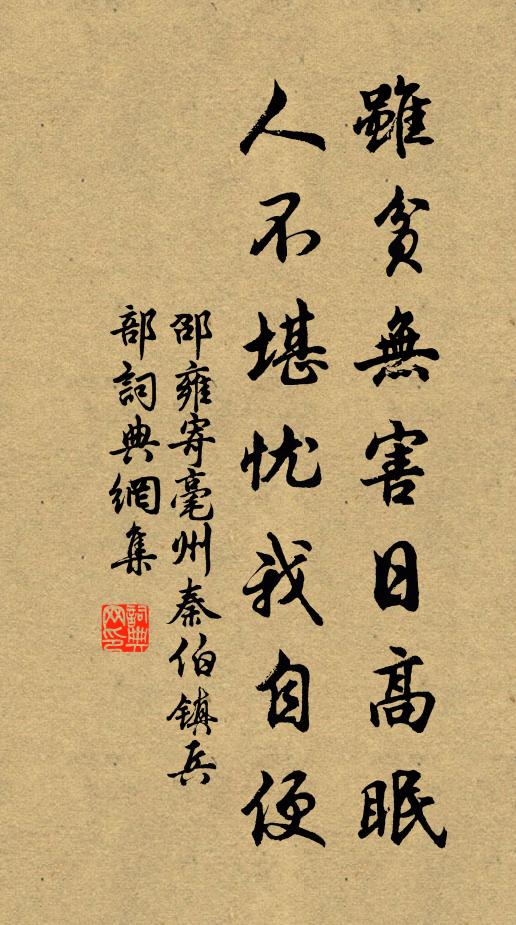 雖貧無害日高眠
人不堪忧我自便
邵雍寄亳州秦伯镇兵
部詞典網集
詞典網印